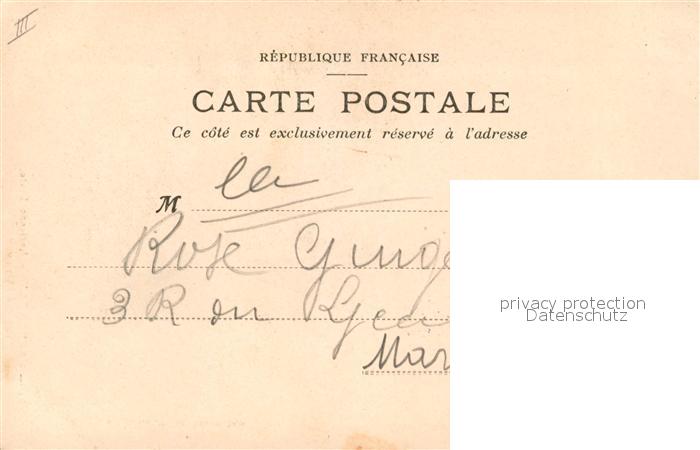 III
RÉPUBLIQUE FRANÇAISE
CARTE POSTALE
Ce côté est exclusivement réservé à l'adresse
M lle
Rose
3 R du
privacy protection
Datenschutz